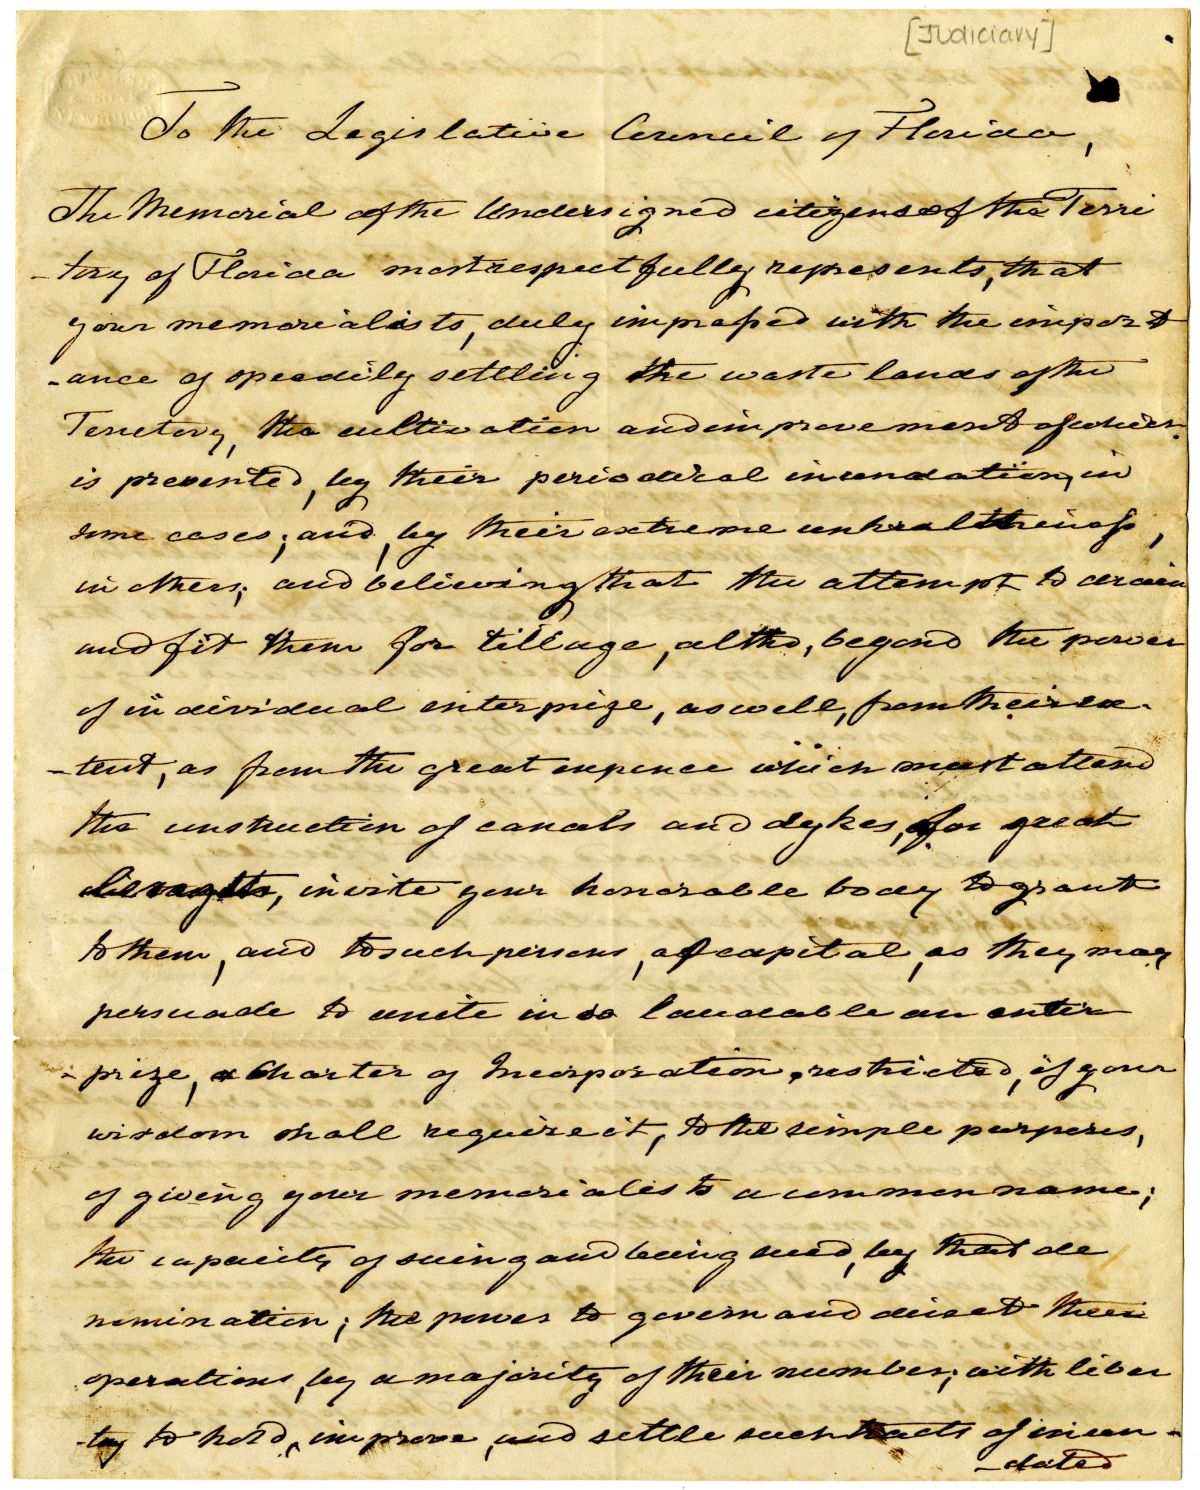 [Judiciary]
To the Legislative Council of Florida,
The Memorial of the Undersigned citizens of the Terri
-tory of Florida most respectfully represents, that
your memorialists, duly impressed with the import
-ance of speedily settling the waste lands of the
Territory, the cultivation and improvement of which
is prevented, by their periodical inundation, in
some cases; and, by their extreme unhealthiness,
in others; and believing that the attempt to drain
and fit them for tillage, altho, beyond the power
of individual enterprize, as well, from their ex-
-tent, as from the great expence which must attend
the construction of canals and dykes, for great
invite your honorable body to grant
to them, and to such persons, of capital, as they may
persuade to unite in so laudable an enter
-prize, a Charter of Incorporation, restricted, if your
wisdom shall require it, to the simple purposes,
of giving your memorialists a common name;
the capacity of suing and being sued, by that de
nomination; the power to govern and direct their
operations, by a majority of their number; with liber
-ty to hold, improve, and settle such tracts of inun-
-dated